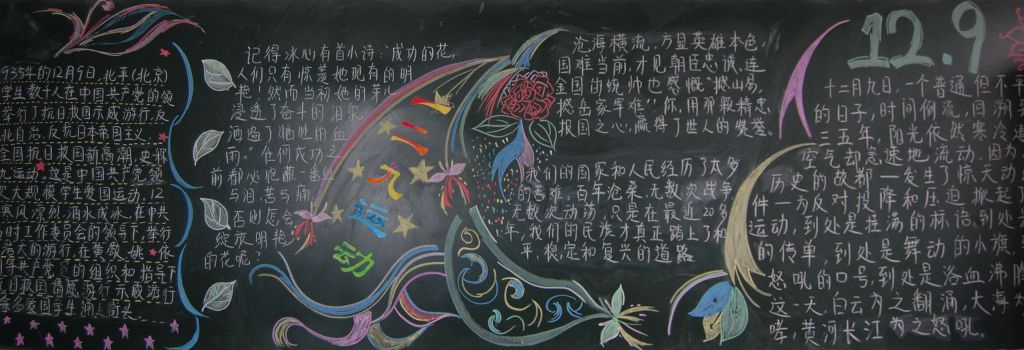 935年的12月9日,北平(北京)
学生数千人在中国共产党的领
举行了抗日救国示威游行,反
北自治,反抗日本帝国主义,
全国抗日救国新高潮,史称
九运动,这是中国共产党领
次大规模学生爱国运动,12
寒风凛冽,滴水成冰,在中共
时工作委员会的领导下,举行
大的游行,在黄敬、姚依
共产党员的组织和指导下
记得冰心有首小诗:“成功的花,
人们只有惊羡她现有的明
艳!然而当初她的芽儿,
浸透了奋斗的泪泉,
洒遍了牺牲的血
雨。”任何成功之
前都必饱蘸一番血
与泪,苦与痛,
否则怎会
绽放明艳
的花呢?
一二九运动
沧海横流,方显英雄本色,
国难当前,才见朝臣忠诚,连
金国的统帅也感慨“撼山易,
撼岳家军难”!你,用那颗精忠
报国之心,赢得了世人的赞
我们的国家和人民经历了太多
的苦难。百年沧桑,无数次战争,
无数次动荡,只是在最近20多
年,我们的民族才真正踏上了和
平、稳定和复兴的道路
12.9
十二月九日,一个普通但不平
的日子,时间倒流,回溯
三五年,阳光依然寒冷
空气却急速地流动。因为
历史的故都——发生了惊天动
件——为反对投降和压迫掀起
运动,到处是狂荡的标语,到处
的传单,到处是舞动的小旗
怒吼的口号,到处是浴血沸腾
这一天,白云为之翻涌,大海为
啸,黄河长江为之怒吼。